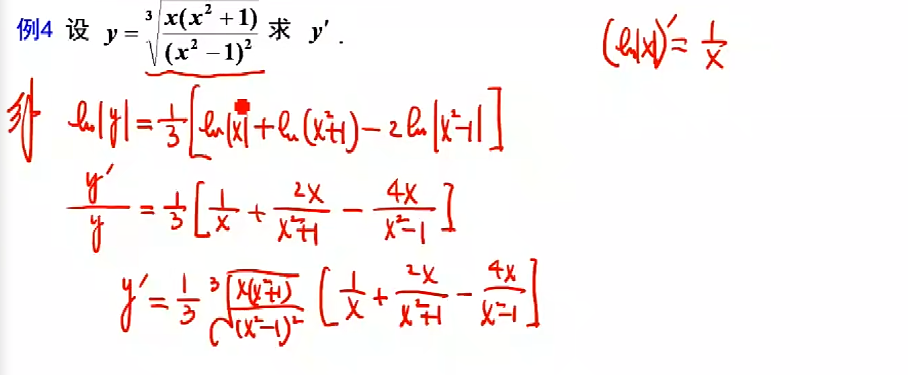 例4 设 y = ∛(x(x² + 1)/(x² − 1)²) 求 y′ .
(ln|x|)′ = 1/x
解 ln|y| = 1/3 [ln|x| + ln(x²+1) − 2ln|x²−1|]
y′/y = 1/3 [1/x + 2x/(x²+1) − 4x/(x²−1)]
y′ = 1/3 ∛(x(x²+1)/(x²−1)²) [1/x + 2x/(x²+1) − 4x/(x²−1)]